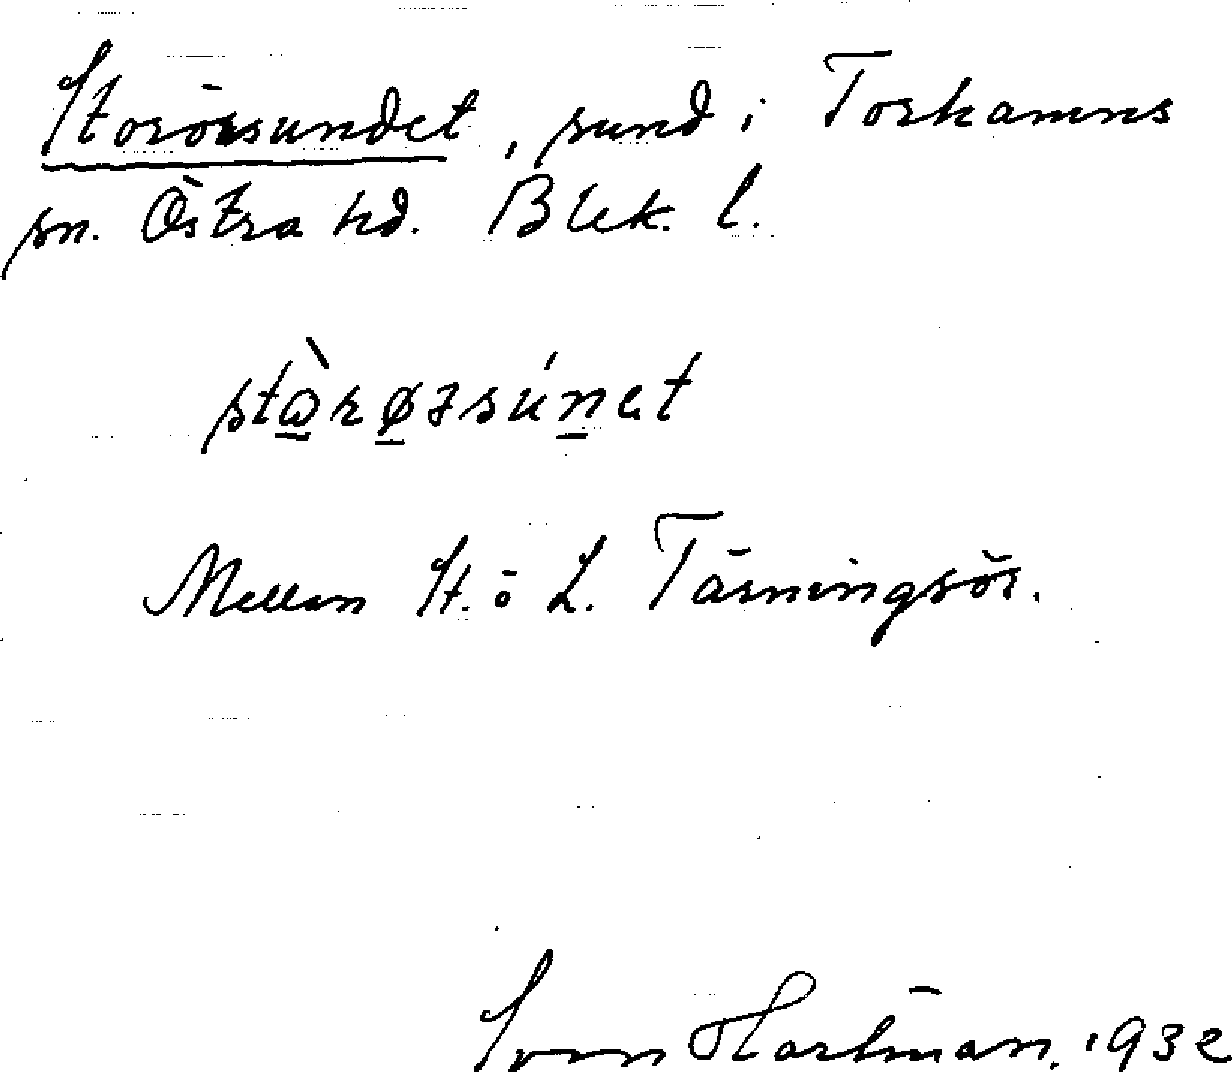 Storörsundet, sund i Torhamns
sn. Östra hd. Blek. l.
Mellan St. o L. Tärningsör.
Sven Hartman. 1932